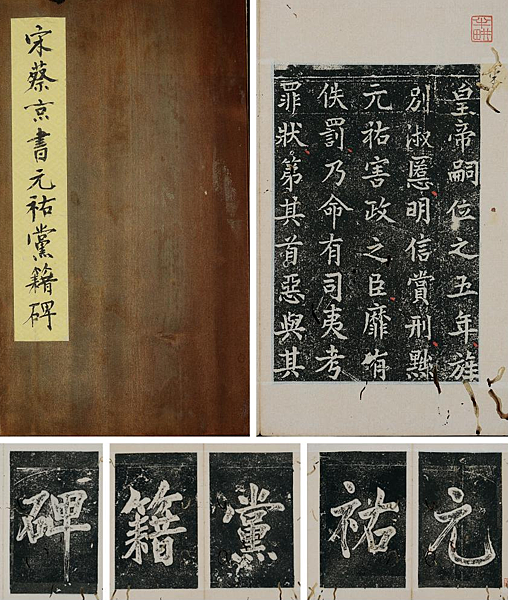 宋蔡京書元祐黨籍碑
皇帝嗣位之五年旌
別淑慝明信賞刑黜
元祐害政之臣靡有
佚罰乃命有司夷考
罪狀第其首惡與其
元
祐
黨
籍
碑